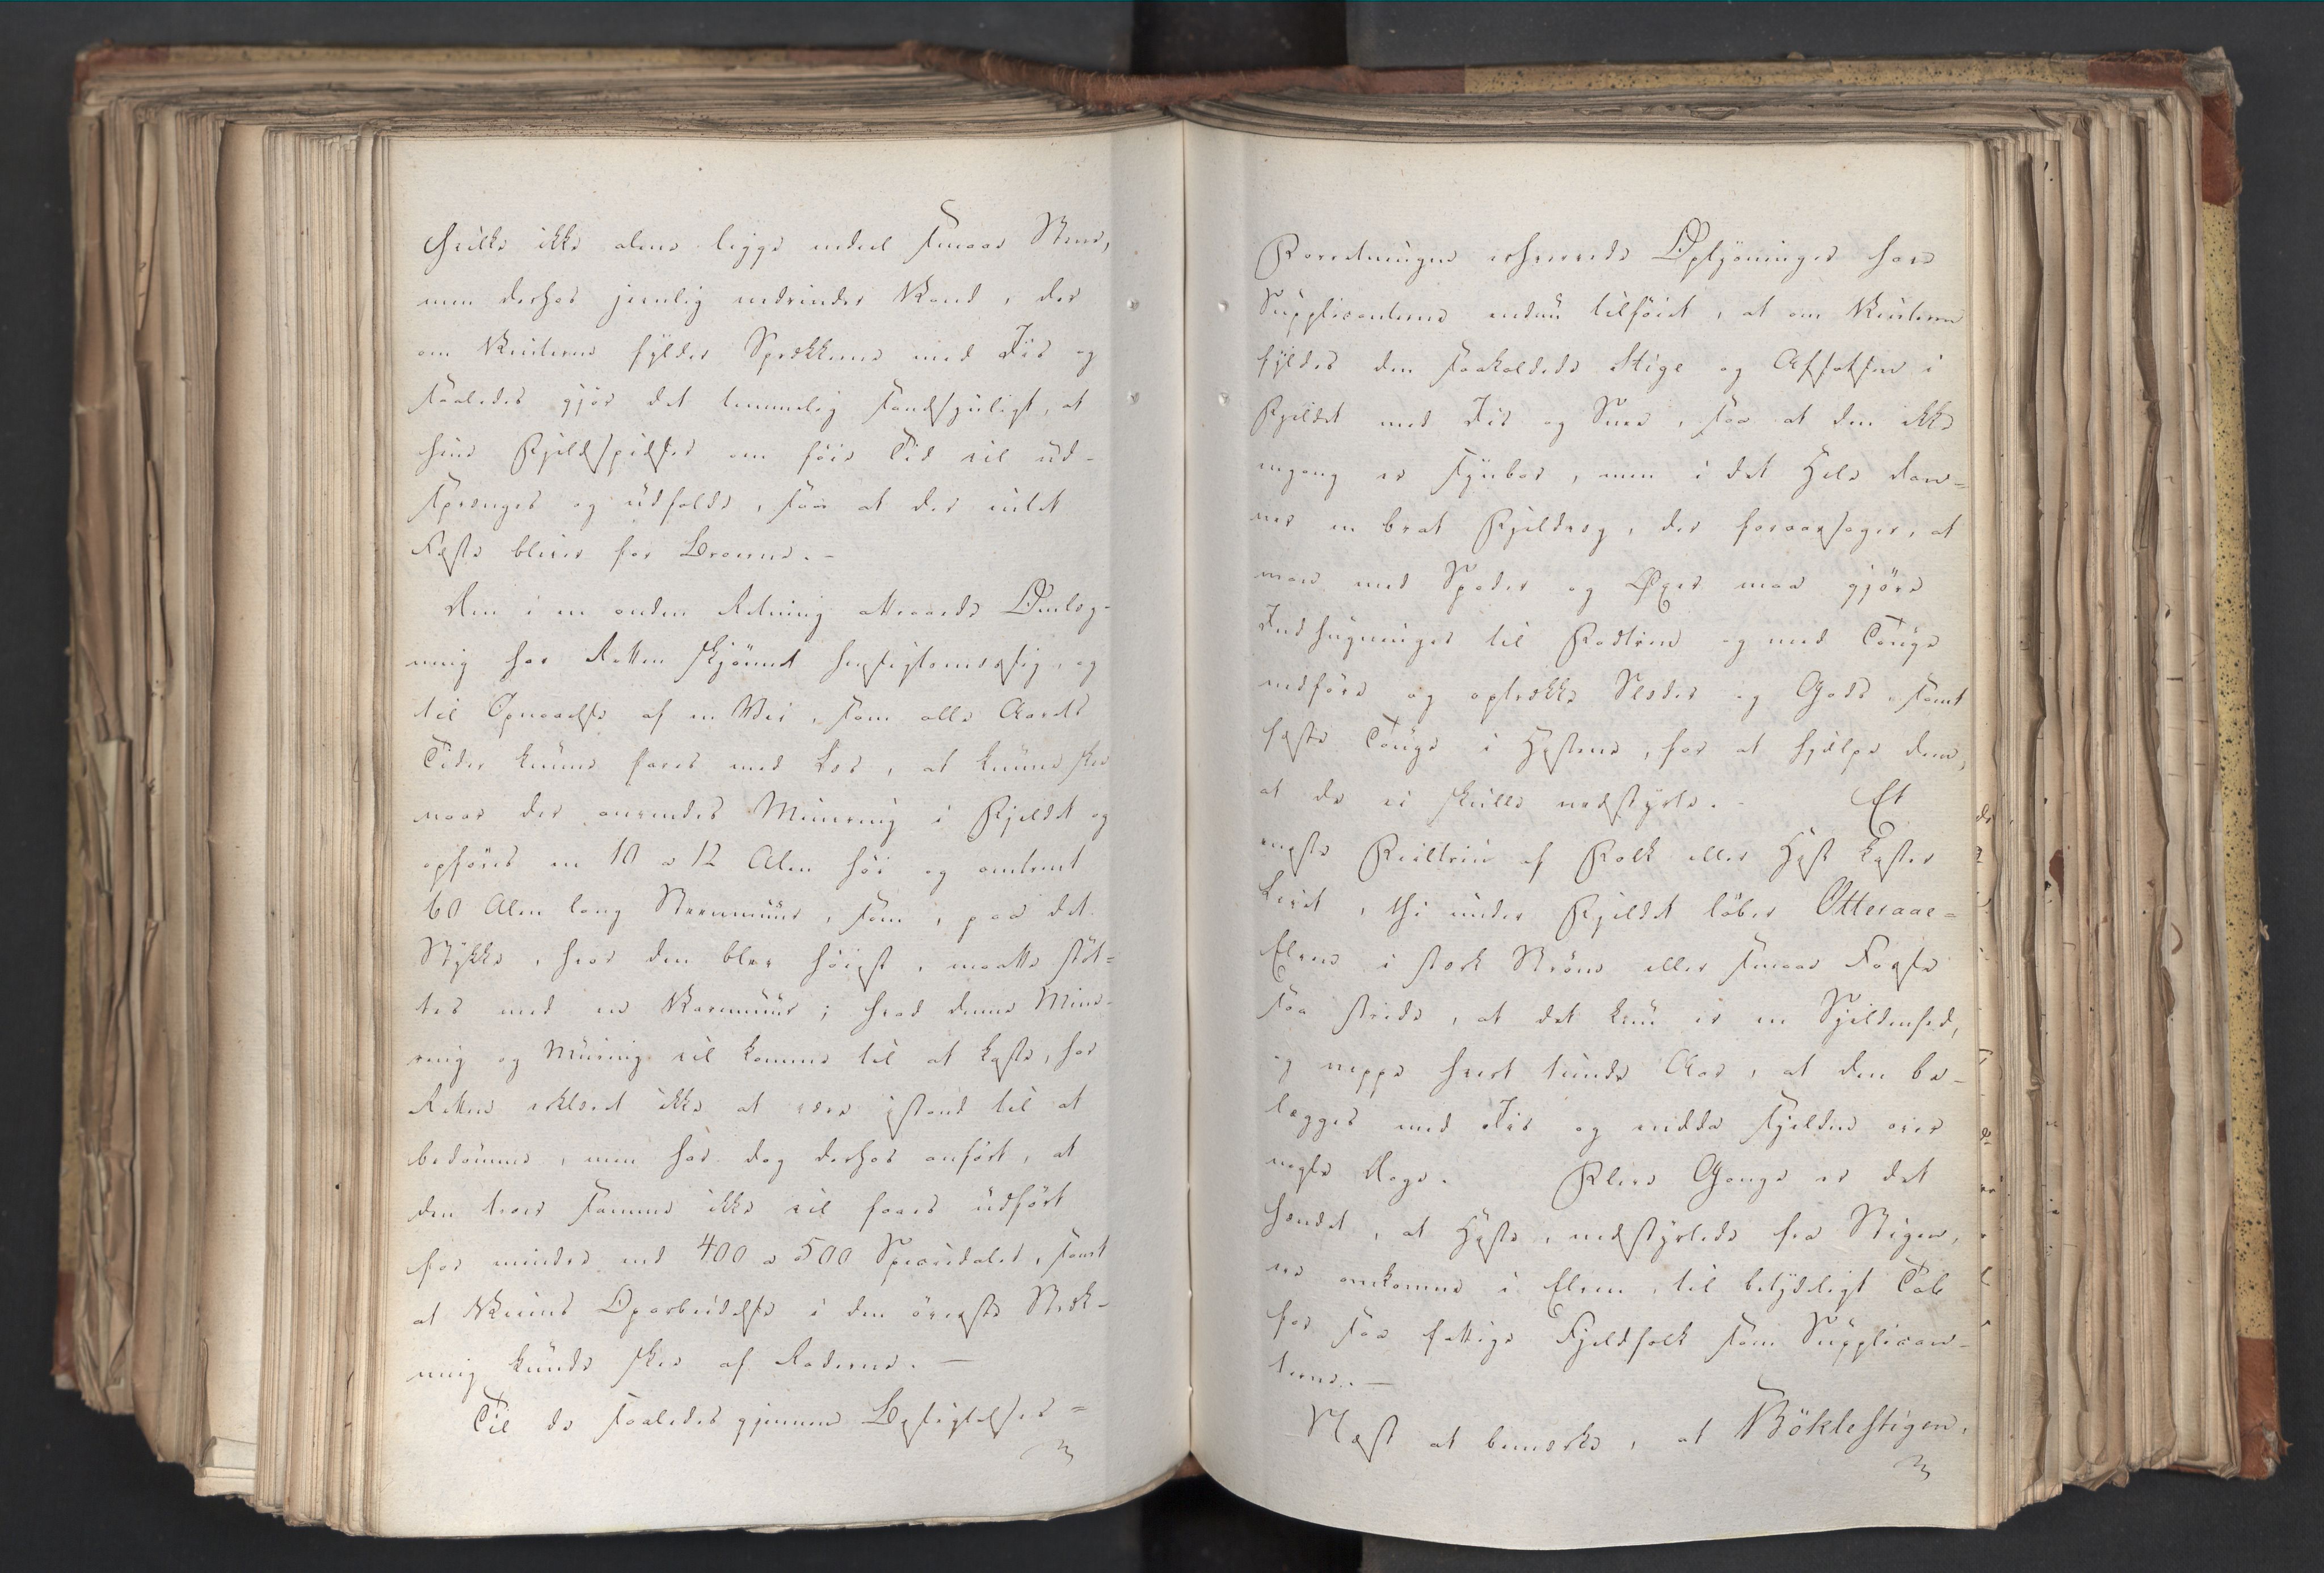 hvilke ikke alene ligge endeel smaae Stene,
men derhos jevnlig nedrinder Vand, der
om Vinteren fylder Sprækkerne med Iis og
saaledes gjør det temmelig sandsynligt, at
hine Fjeldspidser om føie Tid vil ud-
sprenges og udfalde, saa at der intet
Fæste bliver for Broerne.-
Den i en anden Retning attraaede Omlæg-
ning har Retten skjønnet hensigtsmæssig, og
til Opnaaelse af en Vei, som alle Aarets
Tider kunne fares med Læs, at kunne skee
naar der anvendes Minering i Fjeldet og
opføres en 10 a 12 Alen høi og omtrent
60 Alen lang Steenmuur, som, paa det
Stykke, hvor den blev høiest, maatte støt-
tes med en Karmuur; hvad denne Mine-
ring og Muring vil komme til at koste, har
Retten erklæret ikke at være istand til at
bedømme, men har dog derhos anført, at
den troer samme ikke vil faaes udført
for mindre end 400 a 500 Speciedaler, samt
at Veiens Oparbeidelse i den øvrige Stræk-
ning kunde skee af Roderne. —
Til de saaledes gjennem Besigtelses-
Forretningen erhvervede Oplysninger have
Supplicanterne endnu tilføiet, at om Vinteren
fyldes den saakaldede Stige og Afsatsen i
Fjeldet med Iis og Snee, saa at den ikke
engang er synbar, men i det Hele dan-
ner en brat Fjeldvæg, der foraarsager, at
man med Spader og Øxer maa gjøre
Indhugninger til Fodtrin og med Touge
nedføre og optrække Slæder og Gods, samt
fæste Touge i Hestene, for at hjælpe dem,
at de ei skulle nedstyrte. - Et
eneste Feiltrin af Folk eller Hest koster
Livet, thi under Fjeldet løber Otteraae-
Elven i stærk Strøm eller smaae Fosse
saa stride, at det kun er en Sjeldenhed,
og neppe hvert tiende Aar, at den be-
lægges med Iis og endda sjelden over
nogle Dage. Flere Gange er det
hændet, at Heste, nedstyrtede fra Stigen,
ere omkomne i Elven, til betydeligt Tab
for saa fattige Fjeldfolk som Supplican-
terne. —
Næst at bemærke, at Böklestigen,